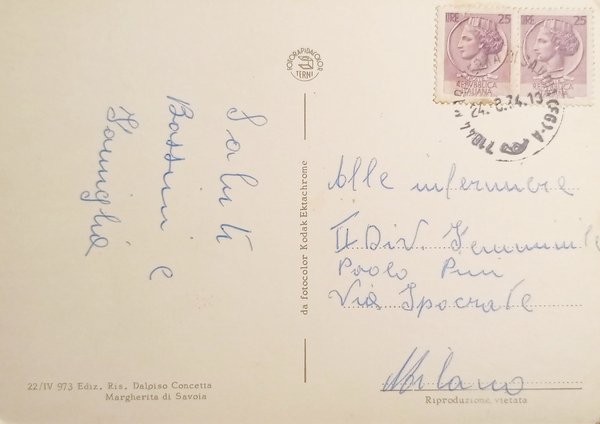 Saluti
Bassini e
Famiglia
FOTORAPIDACOLOR
TERNI
da fotocolor Kodak Ektachrome
22/IV 973 Ediz. Ris. Dalpiso Concetta
Margherita di Savoia
LIRE 25
REPUBBLICA
ITALIANA
LIRE 25
REPUBBLICA
ITALIANA
DI SAVOIA (FG)-A
24.8.74.13
71044
Alle infermiere
II Div. Femminile
Paolo Pini
Via Ipocrate
Milano
Riproduzione vietata